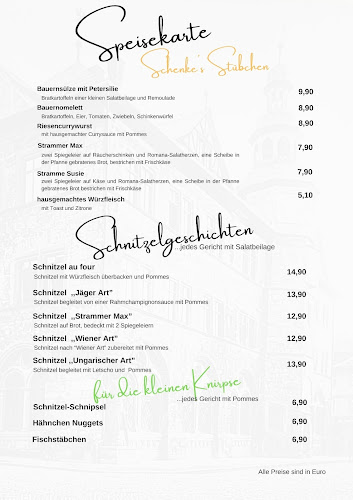 Speisekarte
Schenke's Stübchen
Bauernsülze mit Petersilie 9,90
Bratkartoffeln einer kleinen Salatbeilage und Remoulade
Bauernomelett 8,90
Bratkartoffeln, Eier, Tomaten, Zwiebeln, Schinkenwürfel
Riesencurrywurst 8,90
mit hausgemachter Currysauce mit Pommes
Strammer Max 7,90
zwei Spiegeleier auf Räucherschinken und Romana-Salatherzen, eine Scheibe in
der Pfanne gebratenes Brot, bestrichen mit Frischkäse
Stramme Susie 7,90
zwei Spiegeleier auf Käse und Romana-Salatherzen, eine Scheibe in der Pfanne
gebratenes Brot bestrichen mit Frischkäse
hausgemachtes Würzfleisch 5,10
mit Toast und Zitrone
Schnitzelgeschichten
...jedes Gericht mit Salatbeilage
Schnitzel au four 14,90
Schnitzel mit Würzfleisch überbacken und Pommes
Schnitzel ,,Jäger Art" 13,90
Schnitzel begleitet von einer Rahmchampignonsauce mit Pommes
Schnitzel ,,Strammer Max" 12,90
Schnitzel auf Brot, bedeckt mit 2 Spiegeleiern
Schnitzel ,,Wiener Art" 12,90
Schnitzel nach "Wiener Art" zubereitet mit Pommes
Schnitzel ,,Ungarischer Art" 13,90
Schnitzel begleitet mit Letscho und Pommes
für die kleinen Knirpse
...jedes Gericht mit Pommes
Schnitzel-Schnipsel 6,90
Hähnchen Nuggets 6,90
Fischstäbchen 6,90
Alle Preise sind in Euro